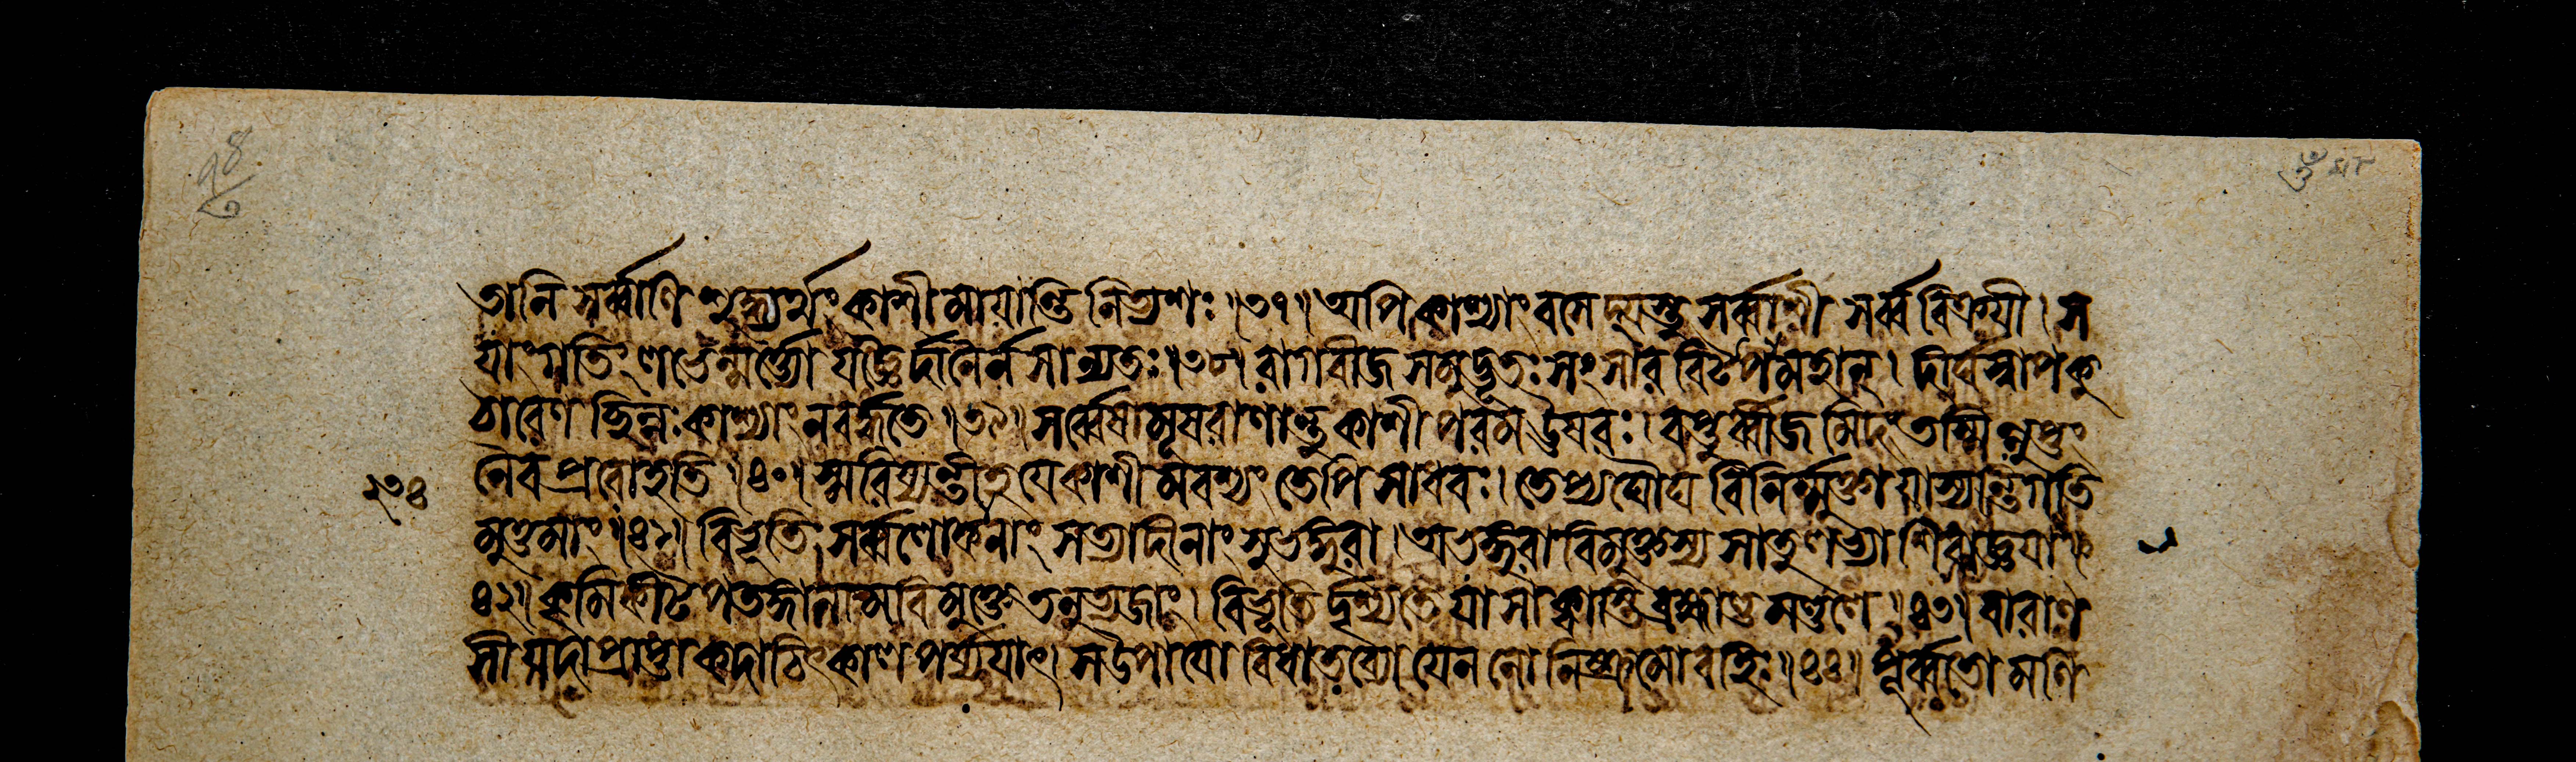 তানি সর্ব্বাণি শুদ্ধ্যর্থং কাশীমায়ান্তি নিত্যশঃ ॥৩৭॥ অপি কাশ্যাং বসেদ্যস্তু সর্ব্বাশী সর্ব্ববিক্রয়ী । স
যাং গতিং লভেন্মর্ত্ত্যো যজ্ঞৈর্দানৈর্ন সান্যতঃ ॥৩৮॥ রাগবীজসমুদ্ভূতঃ সংসারবিটপো মহান্ । দীর্ঘস্বাপকু
ঠারেণ ছিন্নঃ কাশ্যাং ন বর্দ্ধতে ॥৩৯॥ সর্ব্বেষামূষরাণান্তু কাশী পরম উষরঃ । বপ্তুর্ব্বীজমিদং তস্মিন্নুপ্তং
নৈব প্ররোহতি ॥৪০॥ স্মরিষ্যন্তীহ যে কাশীমবশ্যং তেপি সাধবঃ । তেপ্যঘৌঘবিনির্ম্মুক্তা যাস্যন্তি গতি
মুত্তমাং ॥৪১॥ বিভূতিঃ সর্ব্বলোকানাং সত্যাদীনাং সুভঙ্গুরা । অভঙ্গুরা বিমুক্তস্য সা তু লভ্যা শিবাজ্ঞয়া ॥
৪২॥ কৃমিকীটপতঙ্গানামবিমুক্তে তনুত্যজাং । বিভূতির্দৃশ্যতে যা সা ক্বাস্তি ব্রহ্মাণ্ডমণ্ডলে ॥৪৩॥ বারাণ
সী যদা প্রাপ্তা কদাচিৎ কালপর্য্যয়াৎ । স উপায়ো বিধাতব্যো যেন নো নিষ্ক্রমো বহিঃ ॥৪৪॥ পূর্ব্বতো মণি